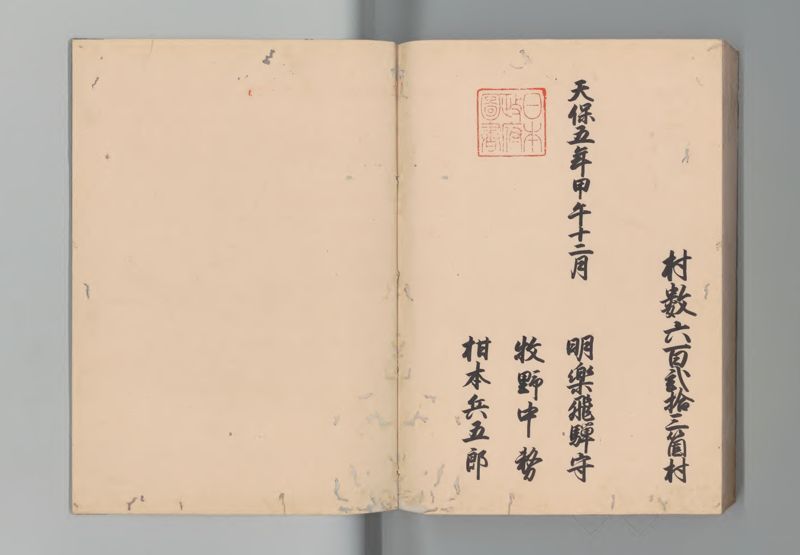 村数六百弐拾三箇村
天保五年甲午十二月
明楽飛騨守
牧野中務
柑本兵五郎
日本
政府
圖書